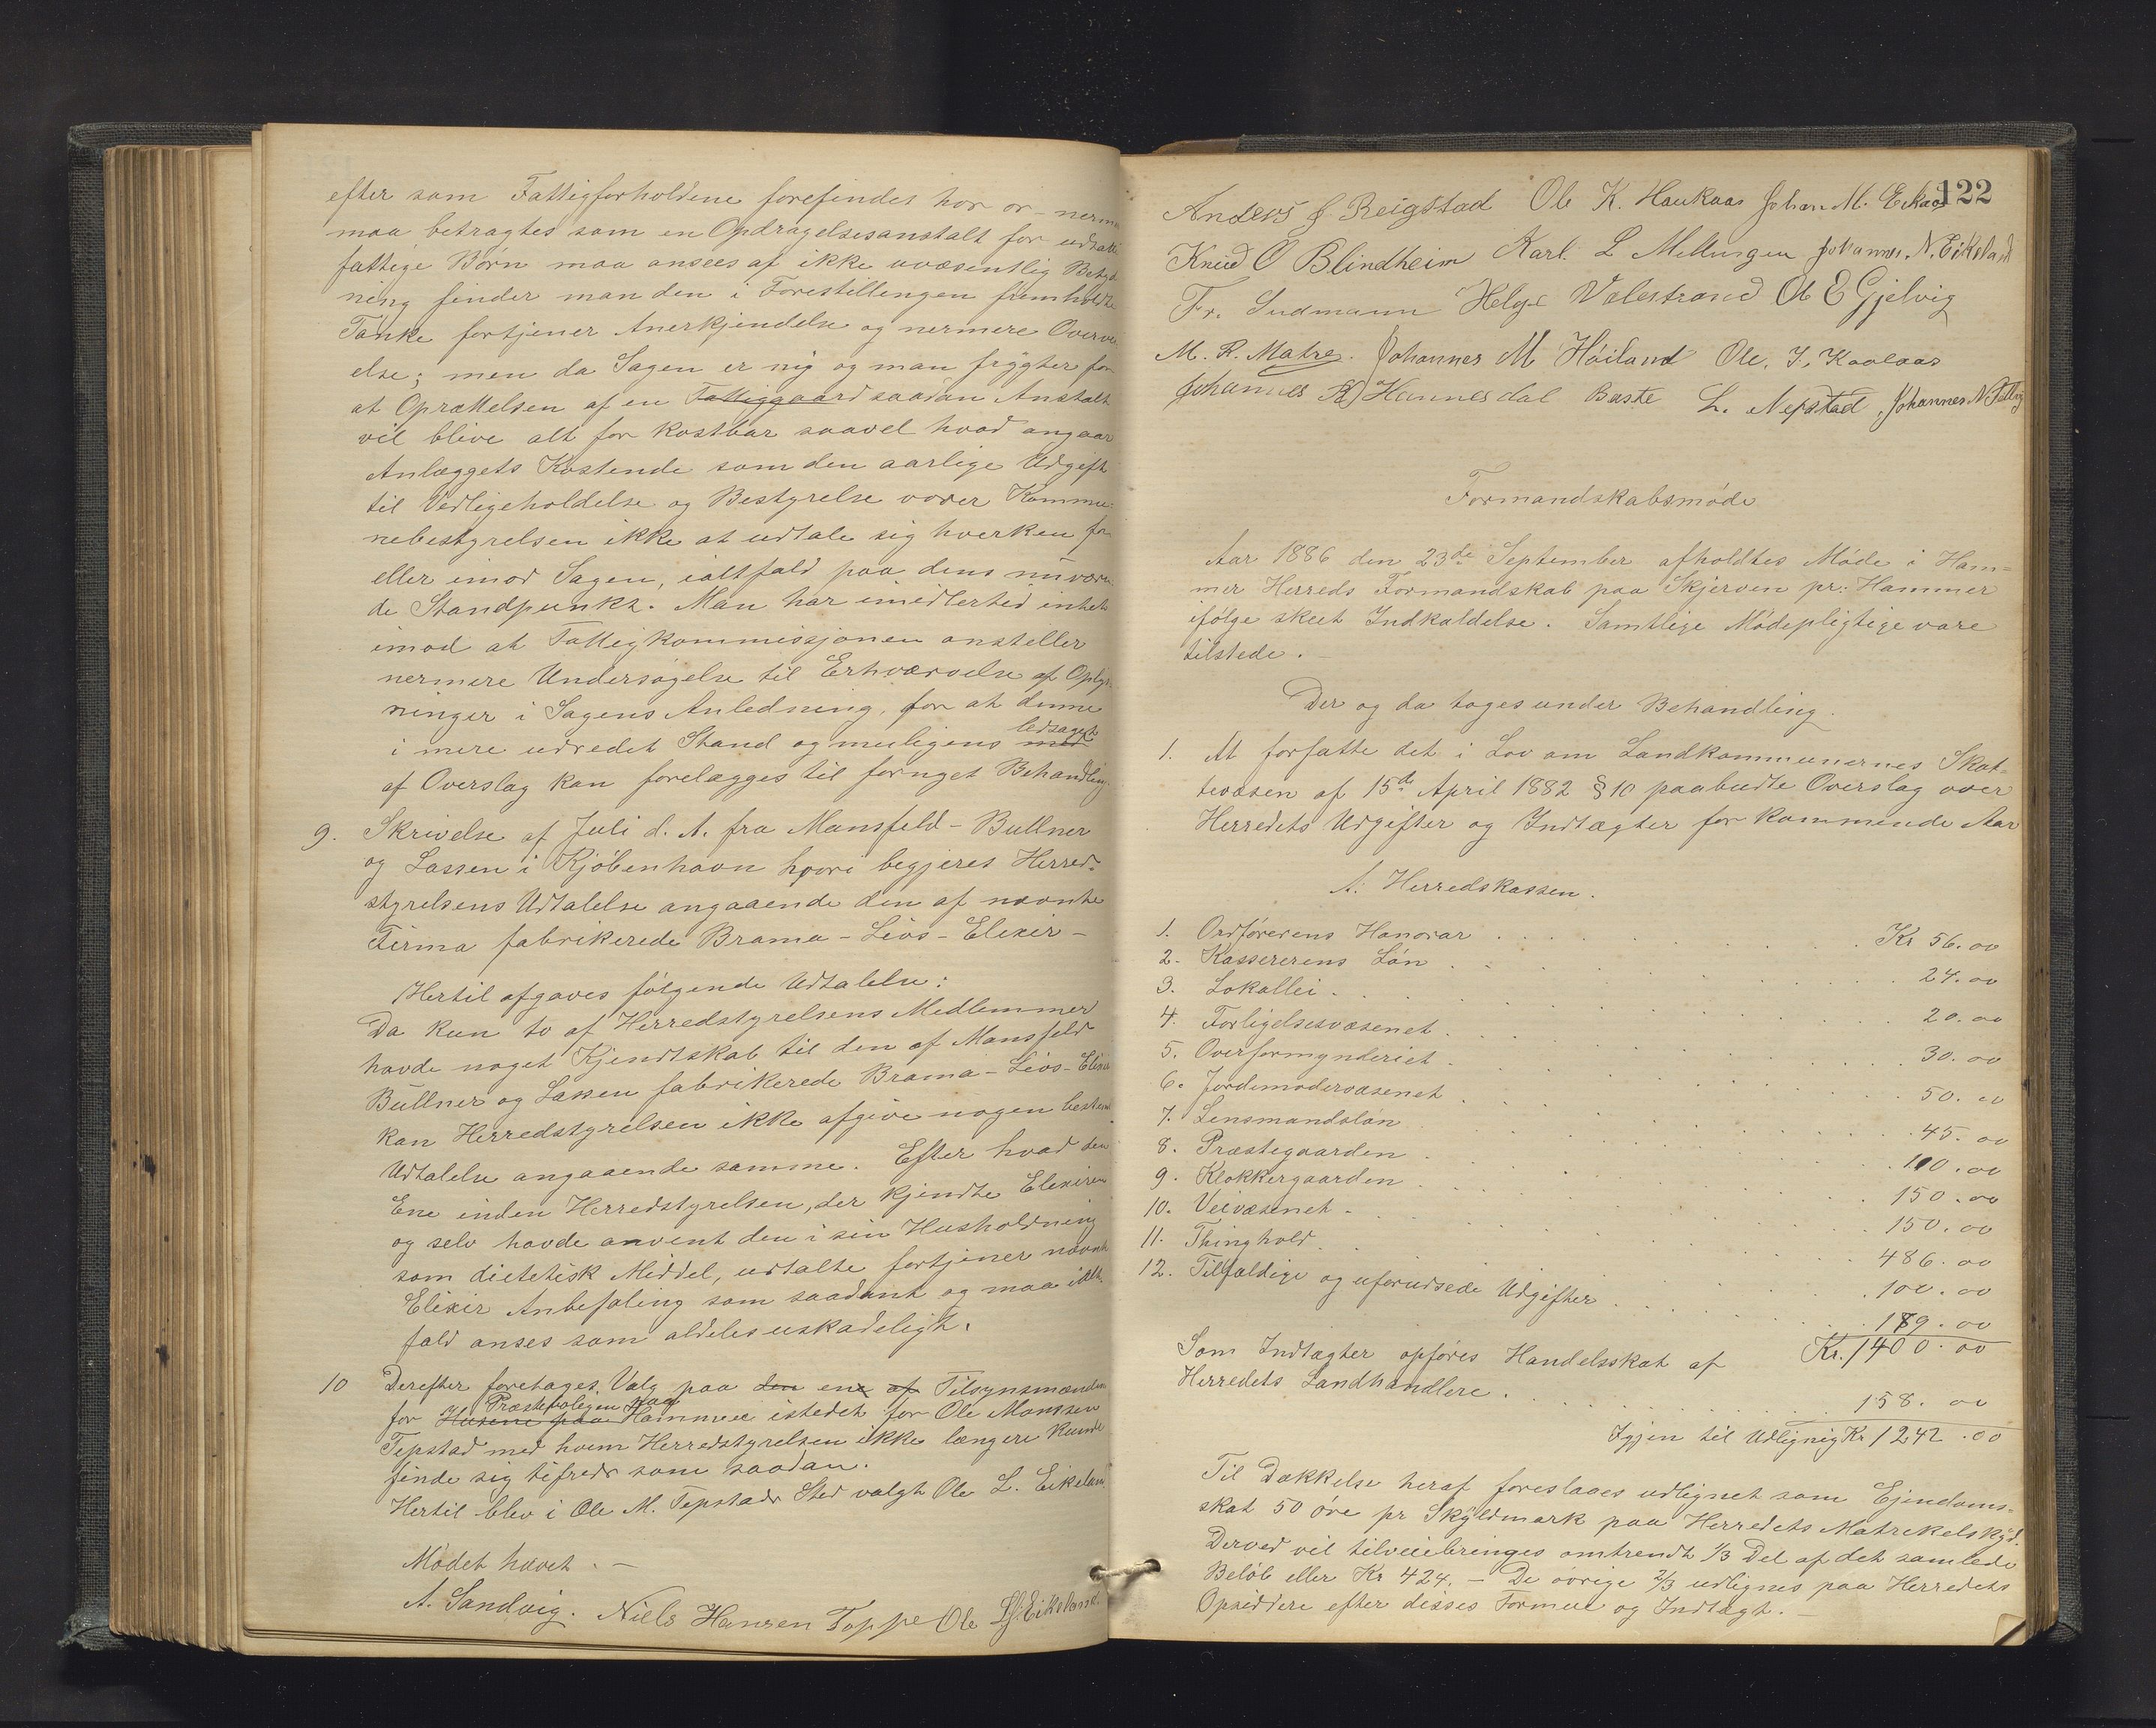 efter som Fattigforholdene forefindes hor or- nerm
maa betragtes som en Opdragelsesanstalt for udsatte
fattige Børn maa ansees af ikke uvæsentlig Betyd
ning finder man den i Forestillingen fremholdte
Tanke fortjener Anerkjendelse og nermere Overvei
else; men da Sagen er ny og man frygter for
at Oprættelsen af en Fattiggaard saadan Anstalt
vil blive alt for kostbar saavel hvad angaar
Anlæggets Kostende som den aarlige Udgift
til Vedligeholdelse og Bestyrelse vover Kommu-
nebestyrelsen ikke at udtale sig hverken for
eller imod Sagen, ialtfald paa dens nuværen
de Standpunkt. Man har imidlertid intet
imod at Fattigkommissjonen ansteller
nermere Undersøgelse til Erhværvelse af Oplys-
ninger i Sagens Anledning, for at denne
i mere udredet Stand og muligens med ledsaget
af Overslag kan forelægges til fornyet Behandling.
9. Skrivelse af Juli d. A. fra Mansfeld-Bullner
og Lassen i Kjøbenhavn hvori begjeres Herred-
styrelsens Udtalelse angaaende den af nævnte
Firma fabrikerede Brama-Livs-Elixir-
Hertil afgaves følgende Udtalelse:
Da kun to af Herredstyrelsens Medlemmer
havde noget Kjendtskab til den af Mansfeld
Bullner og Lassen fabrikerede Brama-Livs-Elixir
kan Herredstyrelsen ikke afgive nogen bestemt
Udtalelse angaaende samme. Efter hvad den
Ene inden Herredstyrelsen, der kjendte Elexiren
og selv havde anvent den i sin Husholdning
som dietetisk Middel, udtalte fortjener nævnte
Elixir Anbefaling som saadant og maa ialt-
fald anses som aldeles uskadeligt.
10 Derefter foretages Valg paa den ene af Tilsynsmænden
for Husene paa Præstebolegen paa Hammer istedet for Ole Monssen
Tepstad med hvem Herredstyrelsen ikke længere kunde
finde sig tifreds som saadan.
Hertil blev i Ole M. Tepstads Sted valgt Ole L. Eikeland
Mødet hævet. -
A. Sandvig. Niels Hansen Toppe Ole L Eikeland.
122
Anders J Reigstad Ole K. Haukaas Johan M. Eikaas
Knud O Blindheim Karl. L Mellingen Johannes N. Eikeland
Fr. Sudmann Helge Valestrand Ole E Gjelvig
M. R. Matre. Johannes M Høiland Ole. J. Kaalaas
Johannes Hannesdal Baste L. Nepstad Johannes N
Formandskabsmøde
Aar 1886 den 23de September afholdtes Møde i Ham=
mer Herreds Formandskab paa Skjerven pr: Hammer
ifølge skeet Indkaldelse. Samtlige Mødepligtige vare
tilstede. -
Der og da toges under Behandling.
1. At forfatte det i Lov om Landkommunernes Skat-
tevæsen af 15de April 1882 § 10 paabudte Overslag over
Herredets Udgifter og Indtægter for kommende Aar
A. Herredskassen.
1. Ordførerens Honorar . . . Kr 56.00
2. Kassererens Løn . . . 24.00
3. Lokallei . . . 20.00
4. Forligelsesvæsenet . . . 30.00
5. Overformynderiet . . . 50.00
6. Jordemodervæsenet . . . 45.00
7. Lensmandsløn . . . 100.00
8. Præstegaarden . . . 150.00
9. Klokkergaarden . . . 150.00
10. Veivæsenet . . . 486.00
11. Thinghold . . . 100.00
12. Tilfældige og uforudsede Udgifter . . . 189.00
Kr. 1400.00
Som Indtægter opføres Handelsskat af
Herredets Landhandlere . . . 158.00
Igjen til Udlignig Kr 1242.00
Til Dækkelse heraf foreslaaes udlignet som Ejendoms-
skat 50 øre pr Skyldmark paa Herredets Matrikelskyd.
Derved vil tilveiebringes omtrendt 1/3 Del af det samlede
Beløb eller Kr 424. - De øvrige 2/3 udlignes paa Herredets
Opsiddere efter disses Formue og Indtægt. -